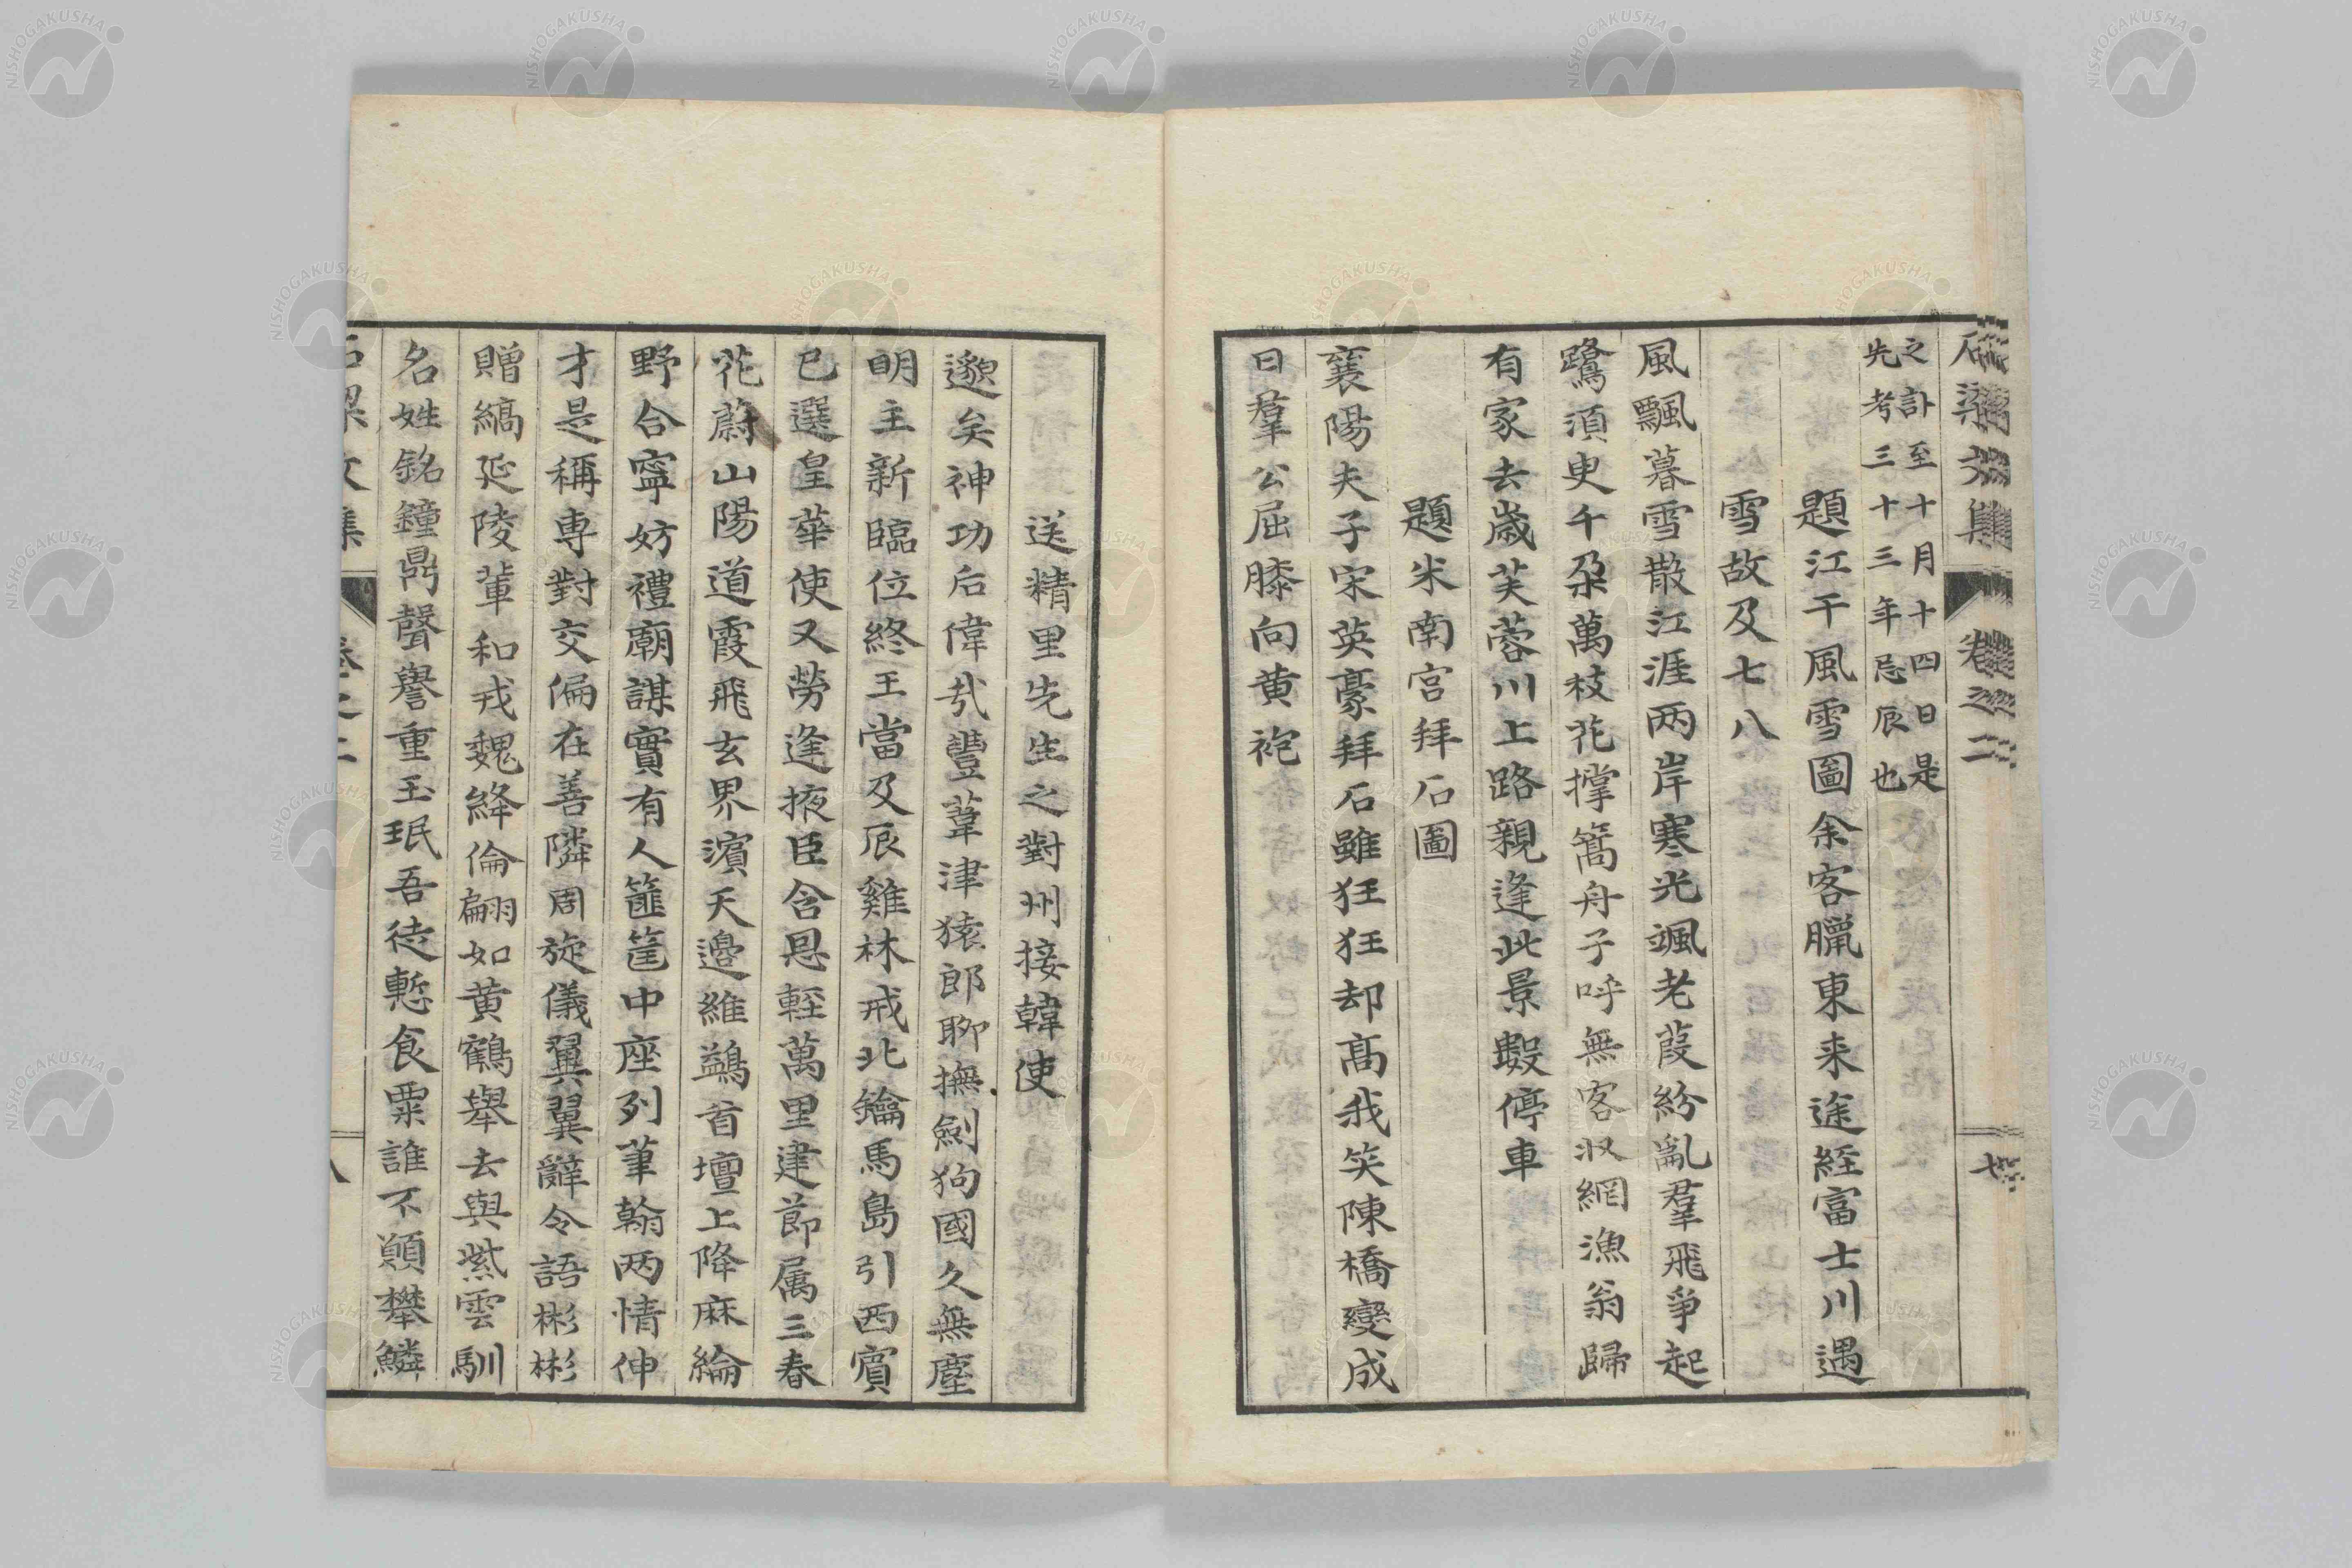 石梁文集 卷之二 七
之訃至十月十四日是
先考三十三年忌辰也
題江干風雪圖余客臘東来途経富士川遇
雪故及七八
風飄暮雪散江涯两岸寒光颯老葭紛亂羣飛爭起
鷺須臾千朶萬枝花撑篙舟子呼無客収網漁翁歸
有家去歳芙蓉川上路親逢此景數停車
題米南宮拜石圖
襄陽夫子宋英豪拜石雖狂狂却髙我笑陳橋變成
日羣公屈膝向黄袍
送精里先生之對州接韓使
邈矣神功后偉㢤豐葦津猿郎聊撫劍狗國久無塵
明主新臨位終王當及辰雞林戒北鑰馬島引西賓
已選皇華使又勞逢掖臣含恩輕萬里建節属三春
花蔚山陽道霞飛玄界濱天邉維鷁首壇上降麻綸
野合寧妨禮廟謀實有人篚筐中座列筆翰两情伸
才是稱専對交偏在善隣周旋儀翼翼辭令語彬彬
贈縞延陵輩和戎魏絳倫翩如黄鶴舉去與紫雲馴
名姓銘鐘鼎聲譽重玉珉吾徒慙食粟誰不願攀鱗
石梁文集 卷之二 八
NISHOGAKUSHA